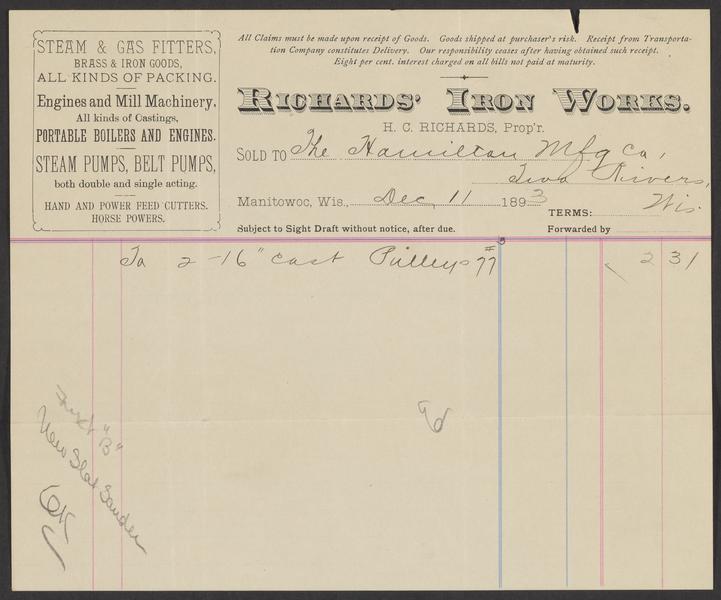 STEAM & GAS FITTERS,
BRASS & IRON GOODS,
ALL KINDS OF PACKING.
Engines and Mill Machinery.
All kinds of Castings,
PORTABLE BOILERS AND ENGINES.
STEAM PUMPS, BELT PUMPS,
both double and single acting.
HAND AND POWER FEED CUTTERS.
HORSE POWERS.
All Claims must be made upon receipt of Goods. Goods shipped at purchaser's risk. Receipt from Transporta-
tion Company constitutes Delivery. Our responsibility ceases after having obtained such receipt.
Eight per cent. interest charged on all bills not paid at maturity.
RICHARDS' IRON WORKS.
H. C. RICHARDS, Prop'r.
SOLD TO The Hamilton Mfg Co,
Two Rivers,
Wis.
Manitowoc, Wis., Dec, 11 1893
TERMS:
Subject to Sight Draft without notice, after due.
Forwarded by
To 2 - 16" cast Pulleys 77 # 2 31
"B"
New Slat Sander
OK